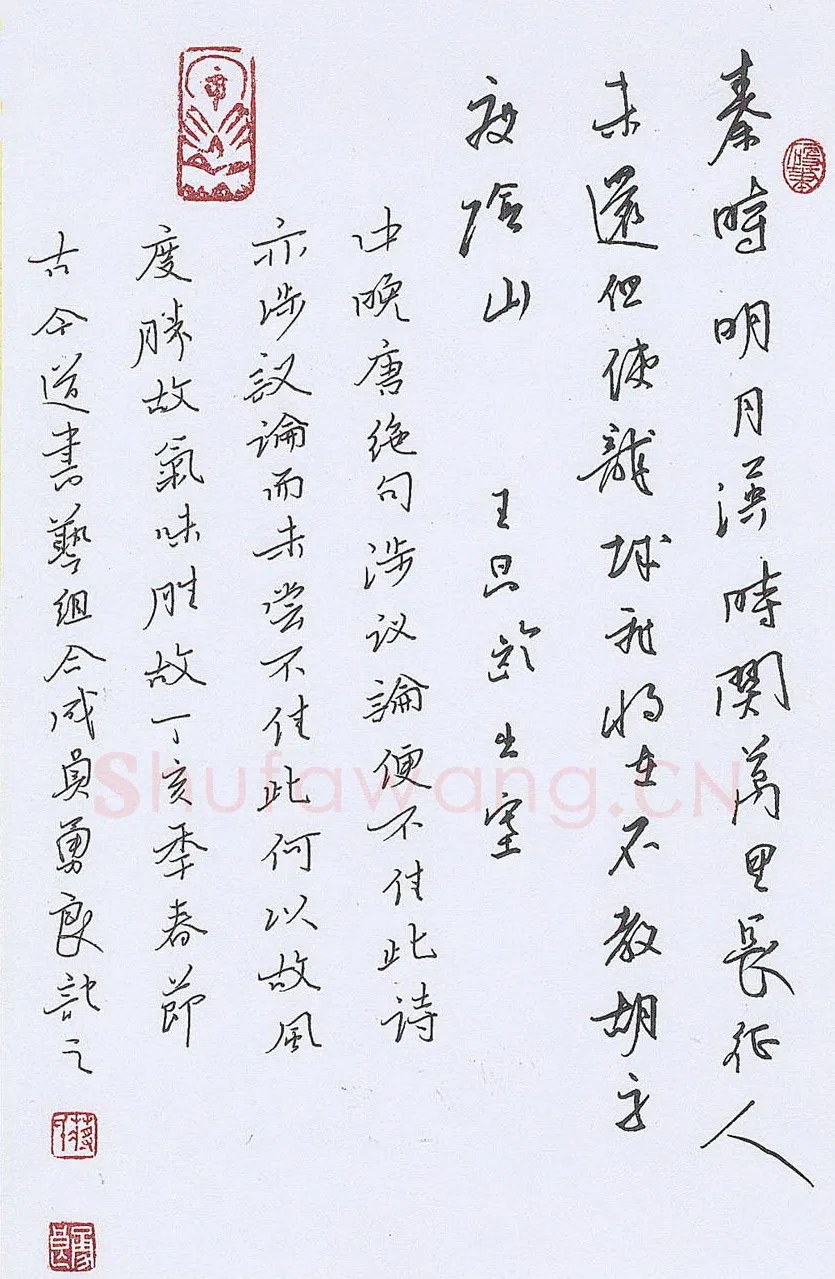 秦時明月漢時關萬里長征人
未還但使龍城飛將在不教胡馬
度陰山 王昌齡出塞
中晚唐绝句涉议論便不佳此詩
亦涉議論而未嘗不佳此何以故風
度勝故氣味胜故丁亥季春節
古今道書藝組合成員勇良記之
Shufawang.CN